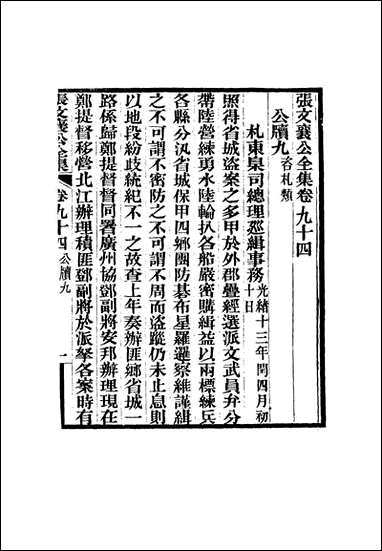 張文襄公全集卷九十四
公牘九 咨札類
札東臬司總理廵緝事務 光緒十三年閏四月初十日
照得省城盜案之多甲於外郡疊經選派文武員弁分
帶陸營練勇水陸輪扒各船嚴密購緝益以兩標練兵
各縣分汛省城保甲四鄉團防棊布星羅邏察維謹緝
之不可謂不密防之不可謂不周而盜蹤仍未止息則
以地段紛歧統紀不一之故查上年奏辦匪鄉省城一
路係歸鄭提督同署廣州協鄧副將安邦辦理現在
鄭提督移營北江辦理積匪鄧副將於派拏各案時有
張文襄公全集 卷九十四 公牘九 一